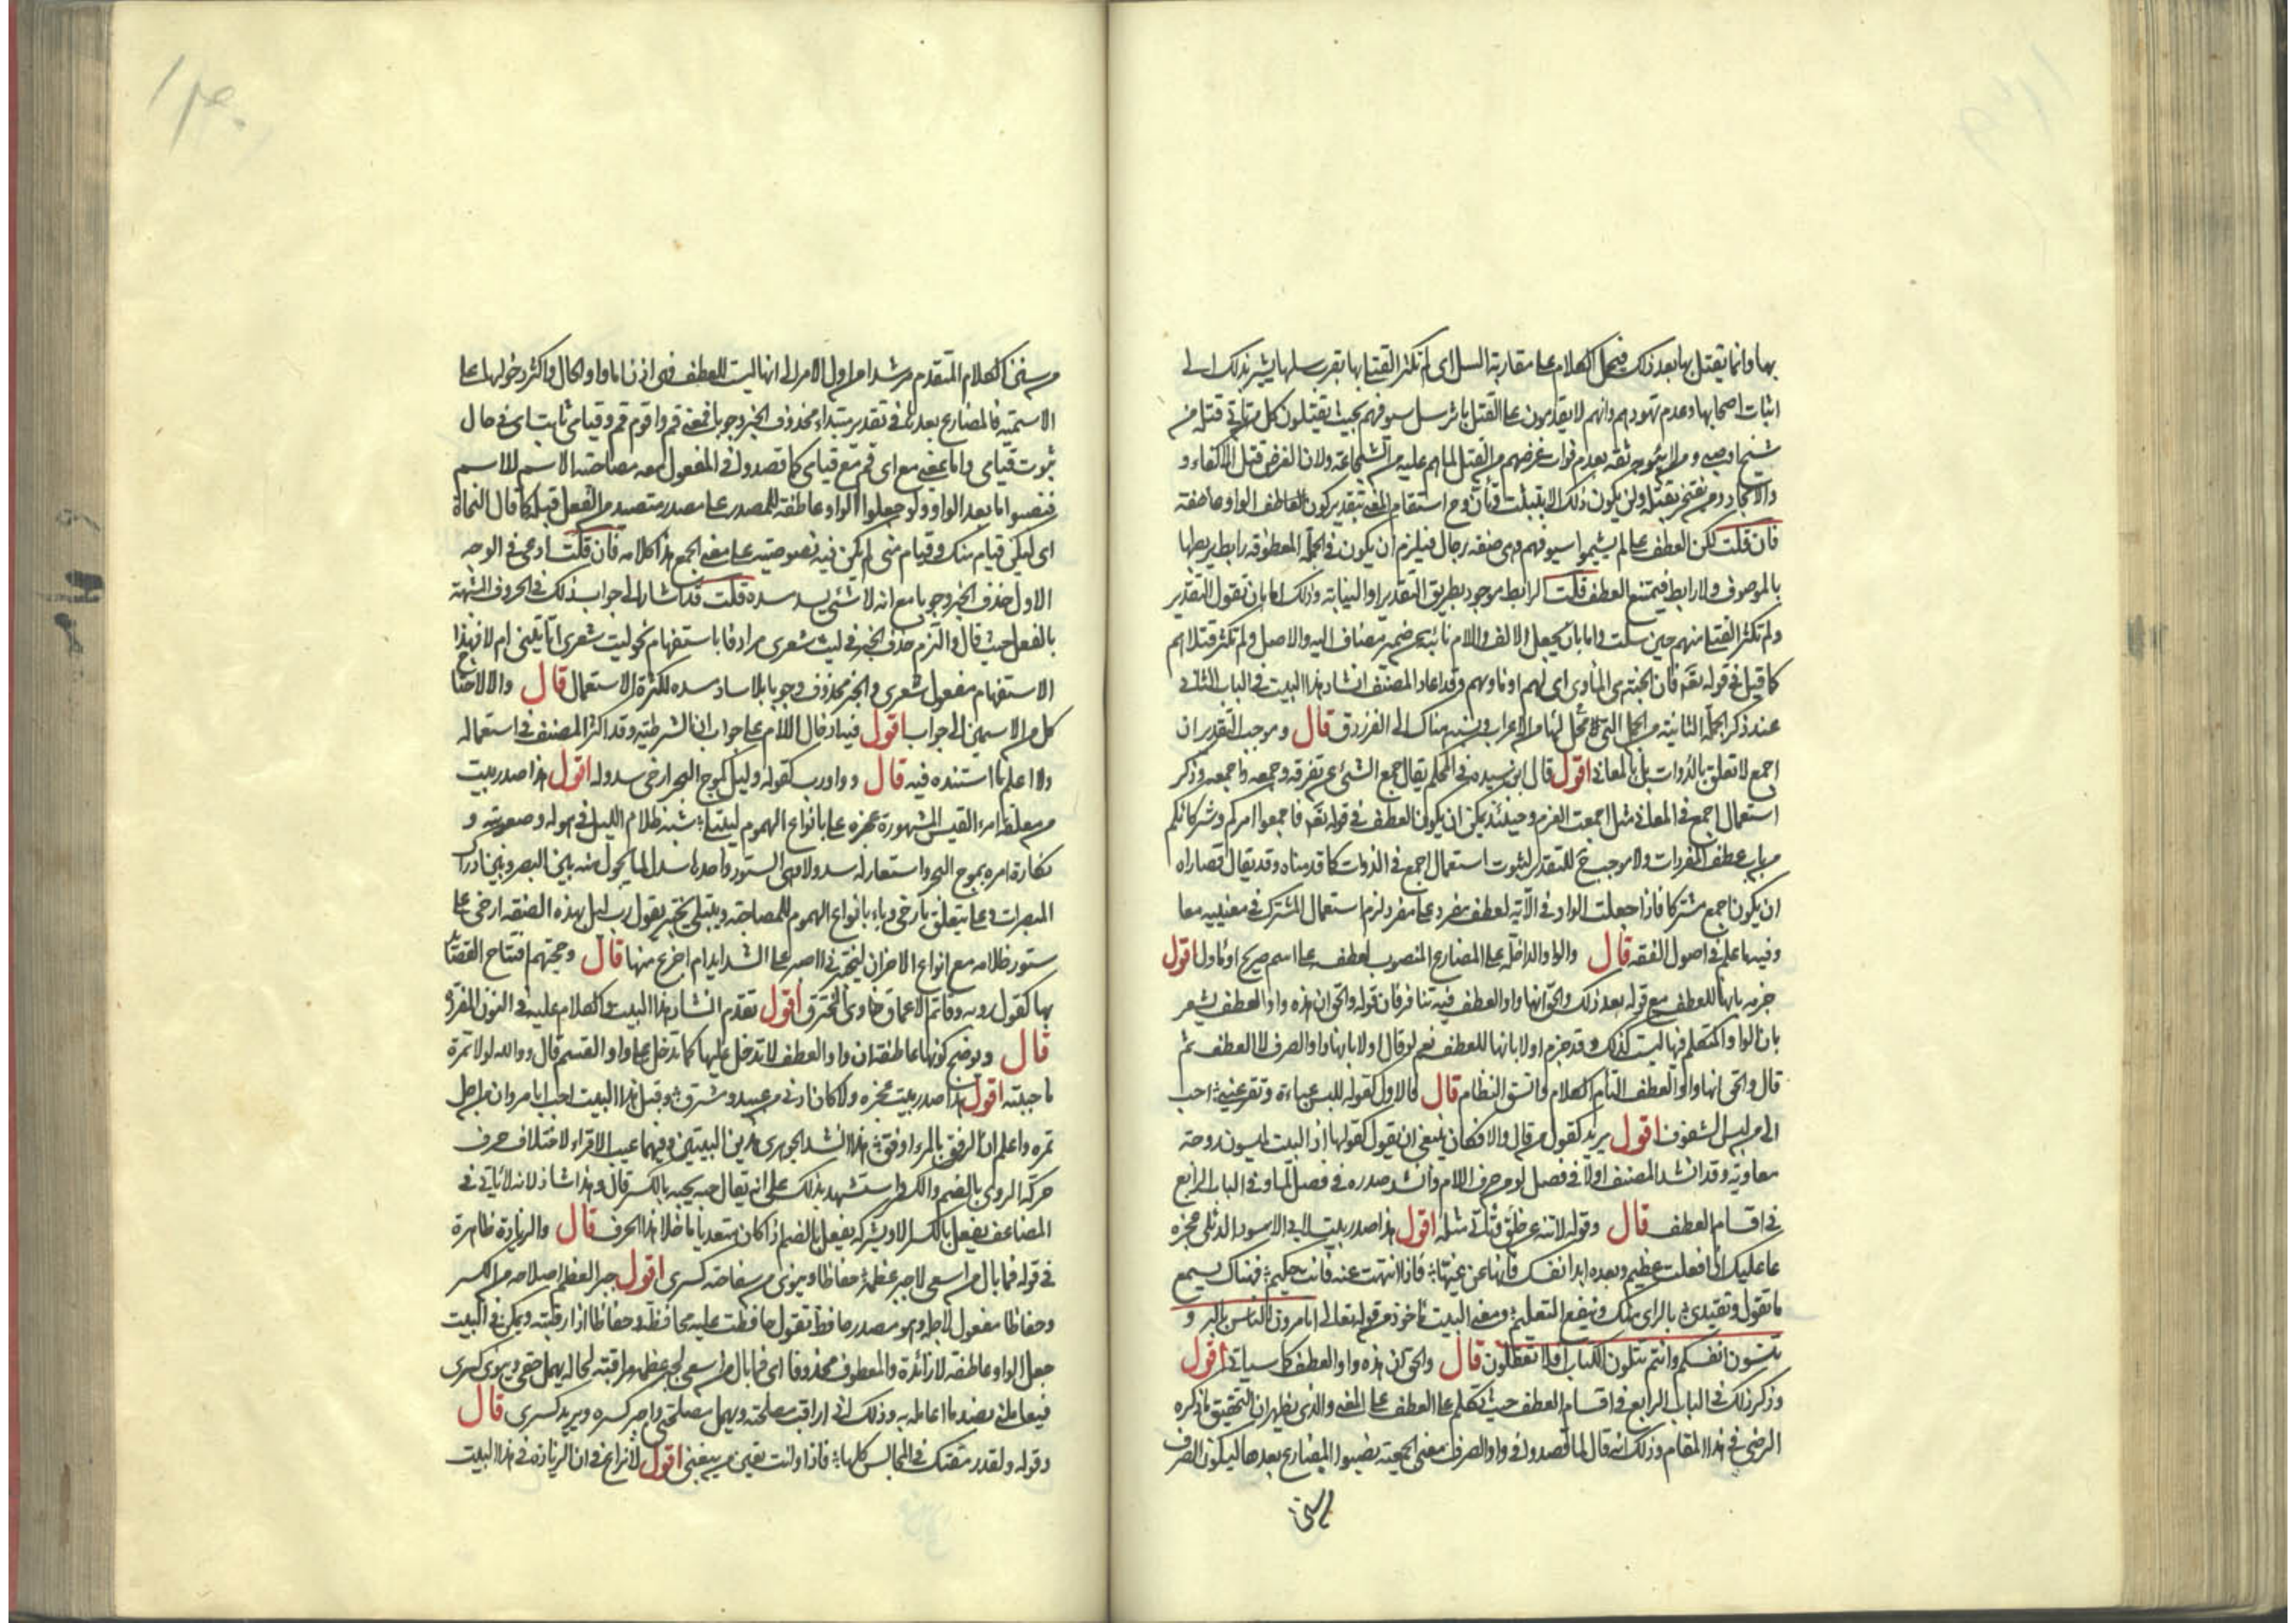 بها وانما يقتل بها بعد ذلك فيحمل الكلام على مقاربة السل اى لم تكثر القتلى بها بقرب سلها يشير بذلك الى
اثبات اصحابها وعدم تهورهم وانهم لا يقدمون على القتل بأثر سل سيوفهم بحيث يقتلون كل من تأتى قتله من
فان قلت لكن العطف على لم يشيموا سيوفهم وهى صفة رجال فيلزم ان يكون فى الجملة المعطوفة رابط يربطها
بالموصوف ولا رابط فيمتنع العطف قلت الرابط موجود بطريق التقدير او النيابة وذلك اما بان تقول التقدير
ولم تكثر القتلى منهم حين سلت واما بان يجعل الالف واللام نائبة عن ضمير مضاف اليه والاصل ولم تكثر قتلاهم
كما قيل فى قوله تع فان الجنة هى المأوى اى لهم او مأويهم وقد اعاد المصنف انشاد هذا البيت فى الباب الثانى
عند ذكر الجملة الثانية من الجمل التى لا محل لها من الاعراب ونسبه هناك الى الفرزدق قال وموجب التقدير ان
اجمع لا تعلق بالذوات بل بالمعانى اقول قال ابن سيده فى المحكم يقال جمع الشئ عن تفرقة وجمعه واجمعه وذكر
استعمال اجمع فى المعانى مثل اجمعت العزم وحينئذ يمكن ان يكون العطف فى قوله تع فاجمعوا امركم وشركائكم
من باب عطف المفردات ولا موجب ح للتقدير لثبوت استعمال اجمع فى الذوات كما قدمناه وقد يقال قصاراه
ان يكون اجمع مشتركا فاذا جعلت الواو فى الآية لعطف مفرد على مفرد لزم استعمال المشترك فى معنييه معا
وفيه ما علم فى اصول الفقه قال والواو الداخلة على المضارع المنصوب لعطفه على اسم صريح او مأول اقول
جزمه بانها للعطف مع قوله بعد ذلك والحق انها واو العطف فيه تنافر فان قوله والحق ان هذه واو العطف يشعر
بان الواو المتكلم فيها ليست كذلك وقد جزم اولا بانها للعطف نعم لو قال اولا بانها واو الصرف لا العطف ثم
قال والحق انها واو العطف التأم الكلام واتسق النظام قال فالاول كقوله للبس عباءة وتقر عينى احب
الى من لبس الشفوف اقول يريد كقول من قال والا فكان ينبغى ان يقول كقولها اذ البيت لميسون زوجة
معاوية وقد انشد المصنف اولا فى فصل لو من حرف اللام وأنشد صدره فى فصل لما وفى الباب الرابع
فى اقسام العطف قال وقوله لا تنه عن خلق وتأتى مثله اقول هذا صدر بيت لابى الاسود الدئلى عجزه
عار عليك اذا فعلت عظيم وبعده ابدأ بنفسك فانهها عن غيها فاذا انتهت عنه فانت حكيم فهناك يسمع
ما تقول ويقتدى بالرأى منك وينفع التعليم ومعنى البيت مأخوذ من قوله تعالى اتامرون الناس بالبر و
تنسون انفسكم وانتم تتلون الكتاب افلا تعقلون قال والحق ان هذه واو العطف كما سيأتى اقول
وذكر ذلك فى الباب الرابع فى اقسام العطف حيث تكلم على العطف على المعنى والذى يظهر ان التحقيق ما ذكره
الرضى فى هذا المقام وذلك انه قال لما قصدوا فى واو الصرف معنى الجمعية نصبوا المضارع بعدها ليكون الصرف
من سنن
من سنن الكلام المتقدم مرشدا من اول الامر الى انها ليست للعطف فهى اذن اما واو الحال واكثر دخولها على
الاسمية فالمضارع بعدها فى تقدير مبتداء محذوف الخبر وجوبا فمعنى قم واقوم قم وقيامى ثابت اى فى حال
ثبوت قيامى واما بمعنى مع اى قم مع قيامى كما قصدوا فى المفعول معه مصاحبة الاسم للاسم
فنصبوا ما بعد الواو ولو جعلوا الواو عاطفة للمصدر على مصدر متصيد من الفعل قبله كما قال النحاة
اى ليكن قيام منك وقيام منى لم يكن فيه نصوصية على معنى الجمع هذا كلامه فان قلت ادعى فى الوجه
الاول حذف الخبر وجوبا مع انه لا شئ يسد مسده قلت قد اشار الى جواب ذلك فى الحروف المشبهة
بالفعل حيث قال والتزم حذف الخبر فى ليت شعرى مرادفا باستفهام نحو ليت شعرى أتأتينى ام لا فهذا
الاستفهام مفعول شعرى والخبر محذوف وجوبا بلا ساد مسده لكثرة الاستعمال قال والا لاحتاج
كل من الاسمين الى جواب اقول فيه ادخال اللام على جواب ان الشرطية وقد اكثر المصنف فى استعماله
ولا اعلم ما استنده فيه قال وواو رب كقوله وليل كموج البحر ارخى سدوله اقول هذا صدر بيت
من معلقة امرء القيس المشهورة عجزه على بانواع الهموم ليبتلى شبه ظلام الليل فى هوله وصعوبته و
نكارة امره بموج البحر واستعار له سدولا وهى الستور واحدها سدل لما يحول منه بين البصر وبين ادراك
المبصرات وعلى يتعلق بارخى وباء بانواع الهموم للمصاحبة ويبتلى يختبر يقول رب ليل بهذه الصفة ارخى على
ستور ظلامه مع انواع الاحزان ليختبرنى أاصبر على الشدايد ام اجزع منها قال وحجتهم افتتاح القصائد
بها كقول روبه وقاتم الاعماق خاوى المخترق اقول تقدم انشاد هذا البيت والكلام عليه فى النون المفردة
قال ويوضح كونها عاطفة ان واو العطف لا تدخل عليها كما تدخل على واو القسم قال ووالله لولا تمره
ما حببته اقول هذا صدر بيت عجزه ولا كان ادنى من عبيد ومشرق وقبل هذا البيت احب ابا مروان من اجل
تمره واعلم ان الرفق بالمرء اوفق هذا انشد الجوهرى هذين البيتين وفيهما عيب الاقواء لاختلاف حرف
حركة الروى بالضم والكسر واستشهد بذلك على انه يقال حبه يحبه بالكسر قال وهذا شاذ لانه لا يأتى فى
المضاعف يفعل بالكسر الا ويشركه يفعل بالضم اذا كان متعديا ما خلا هذا الحرف قال والزيادة ظاهرة
فى قوله فما بال من اسعى لاجبر عظمه حفاظا وينوى من سفاهته كسرى اقول جبر العظم اصلاحه من الكسر
وحفاظا مفعول لاجله وهو مصدر حافظ تقول حافظت عليه محافظة وحفاظا اذا رقبته ويمكن فى البيت
جعل الواو عاطفة لا زائدة والمعطوف محذوفا اى فما بال من اسعى لجبر عظمه مراقبة لحاله يهمل حقى وينوى كسرى
فيعاملنى بضد ما اعامله به وذلك انى اراقب مصلحته ويهمل مصلحتى واجبر كسره ويريد كسرى قال
وقوله ولقد رمقتك فى المجالس كلها فاذا وانت تعين من يبغينى اقول لا نزاع فى ان الزيادة فى هذا البيت